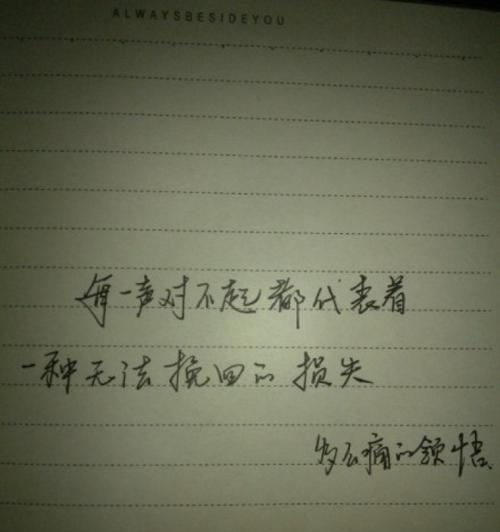 ALWAYSBESIDEYOU
每一声对不起都代表着
一种无法挽回的损失
多么痛的领悟.